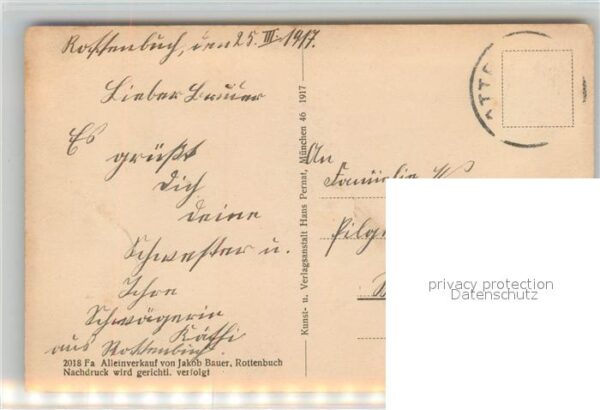 Rottenbuch, den 25. III. 1917.
Lieber Bruder
Es
grüßt
Dich
deine
Schwester u.
Ihre
Schwägerin
Käthi
aus Rottenbuch.
2018 Fa Alleinverkauf von Jakob Bauer, Rottenbuch
Nachdruck wird gerichtl. verfolgt
Kunst- u. Verlagsanstalt Hans Pernat, München 46 1917
An
Familie
Pilg
ATTA
privacy protection
Datenschutz